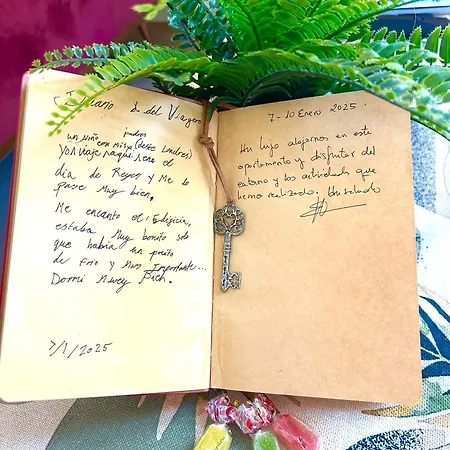 Diario de del Viagero
un niño con mis padres (desde Londres)
Yo Viaje aqui para el
dia de Reyes y Me lo
pase Muy bien.
Me encanto el Edificio,
estaba Muy bonito solo
que habia un poquito
de frio y Mas Importante...
Dormi Muey Bien.
7/1/2025
7-10 Enero 2025.
Un lujo alojarnos en este
apartamento y disfrutar del
entorno y las actividades que
hemos realizado. Un saludo